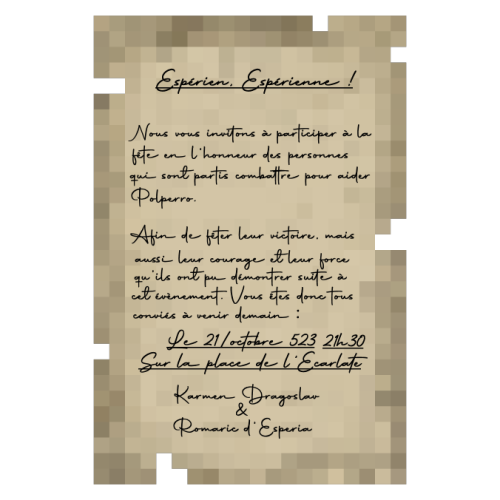 Espérien, Espérienne !
Nous vous invitons à participer à la
fête en l'honneur des personnes
qui sont partis combattre pour aider
Polperro.
Afin de fêter leur victoire, mais
aussi leur courage et leur force
qu'ils ont pu démontrer suite à
cet évènement. Vous êtes donc tous
conviés à venir demain :
Le 21/octobre 523 21h30
Sur la place de l'Ecarlate
Karmen Dragoslav
&
Romaric d'Esperia